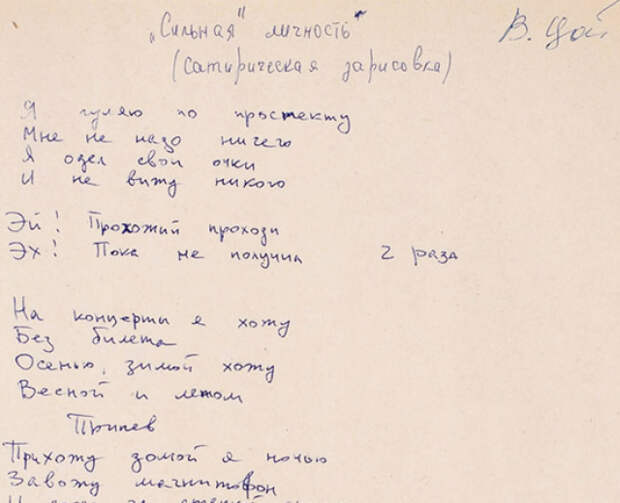 „Сильная" личность"
В. Цой
(сатирическая зарисовка)
Я гуляю по простекту
Мне не надо ничего
Я одел свои очки
И не вижу никого
Эй! Прохожий проходи
Эх! Пока не получил 2 раза
На концерты я хожу
Без билета
Осенью, зимой хожу
Весной и летом
Припев
Прихожу домой я ночью
Завожу магнитофон